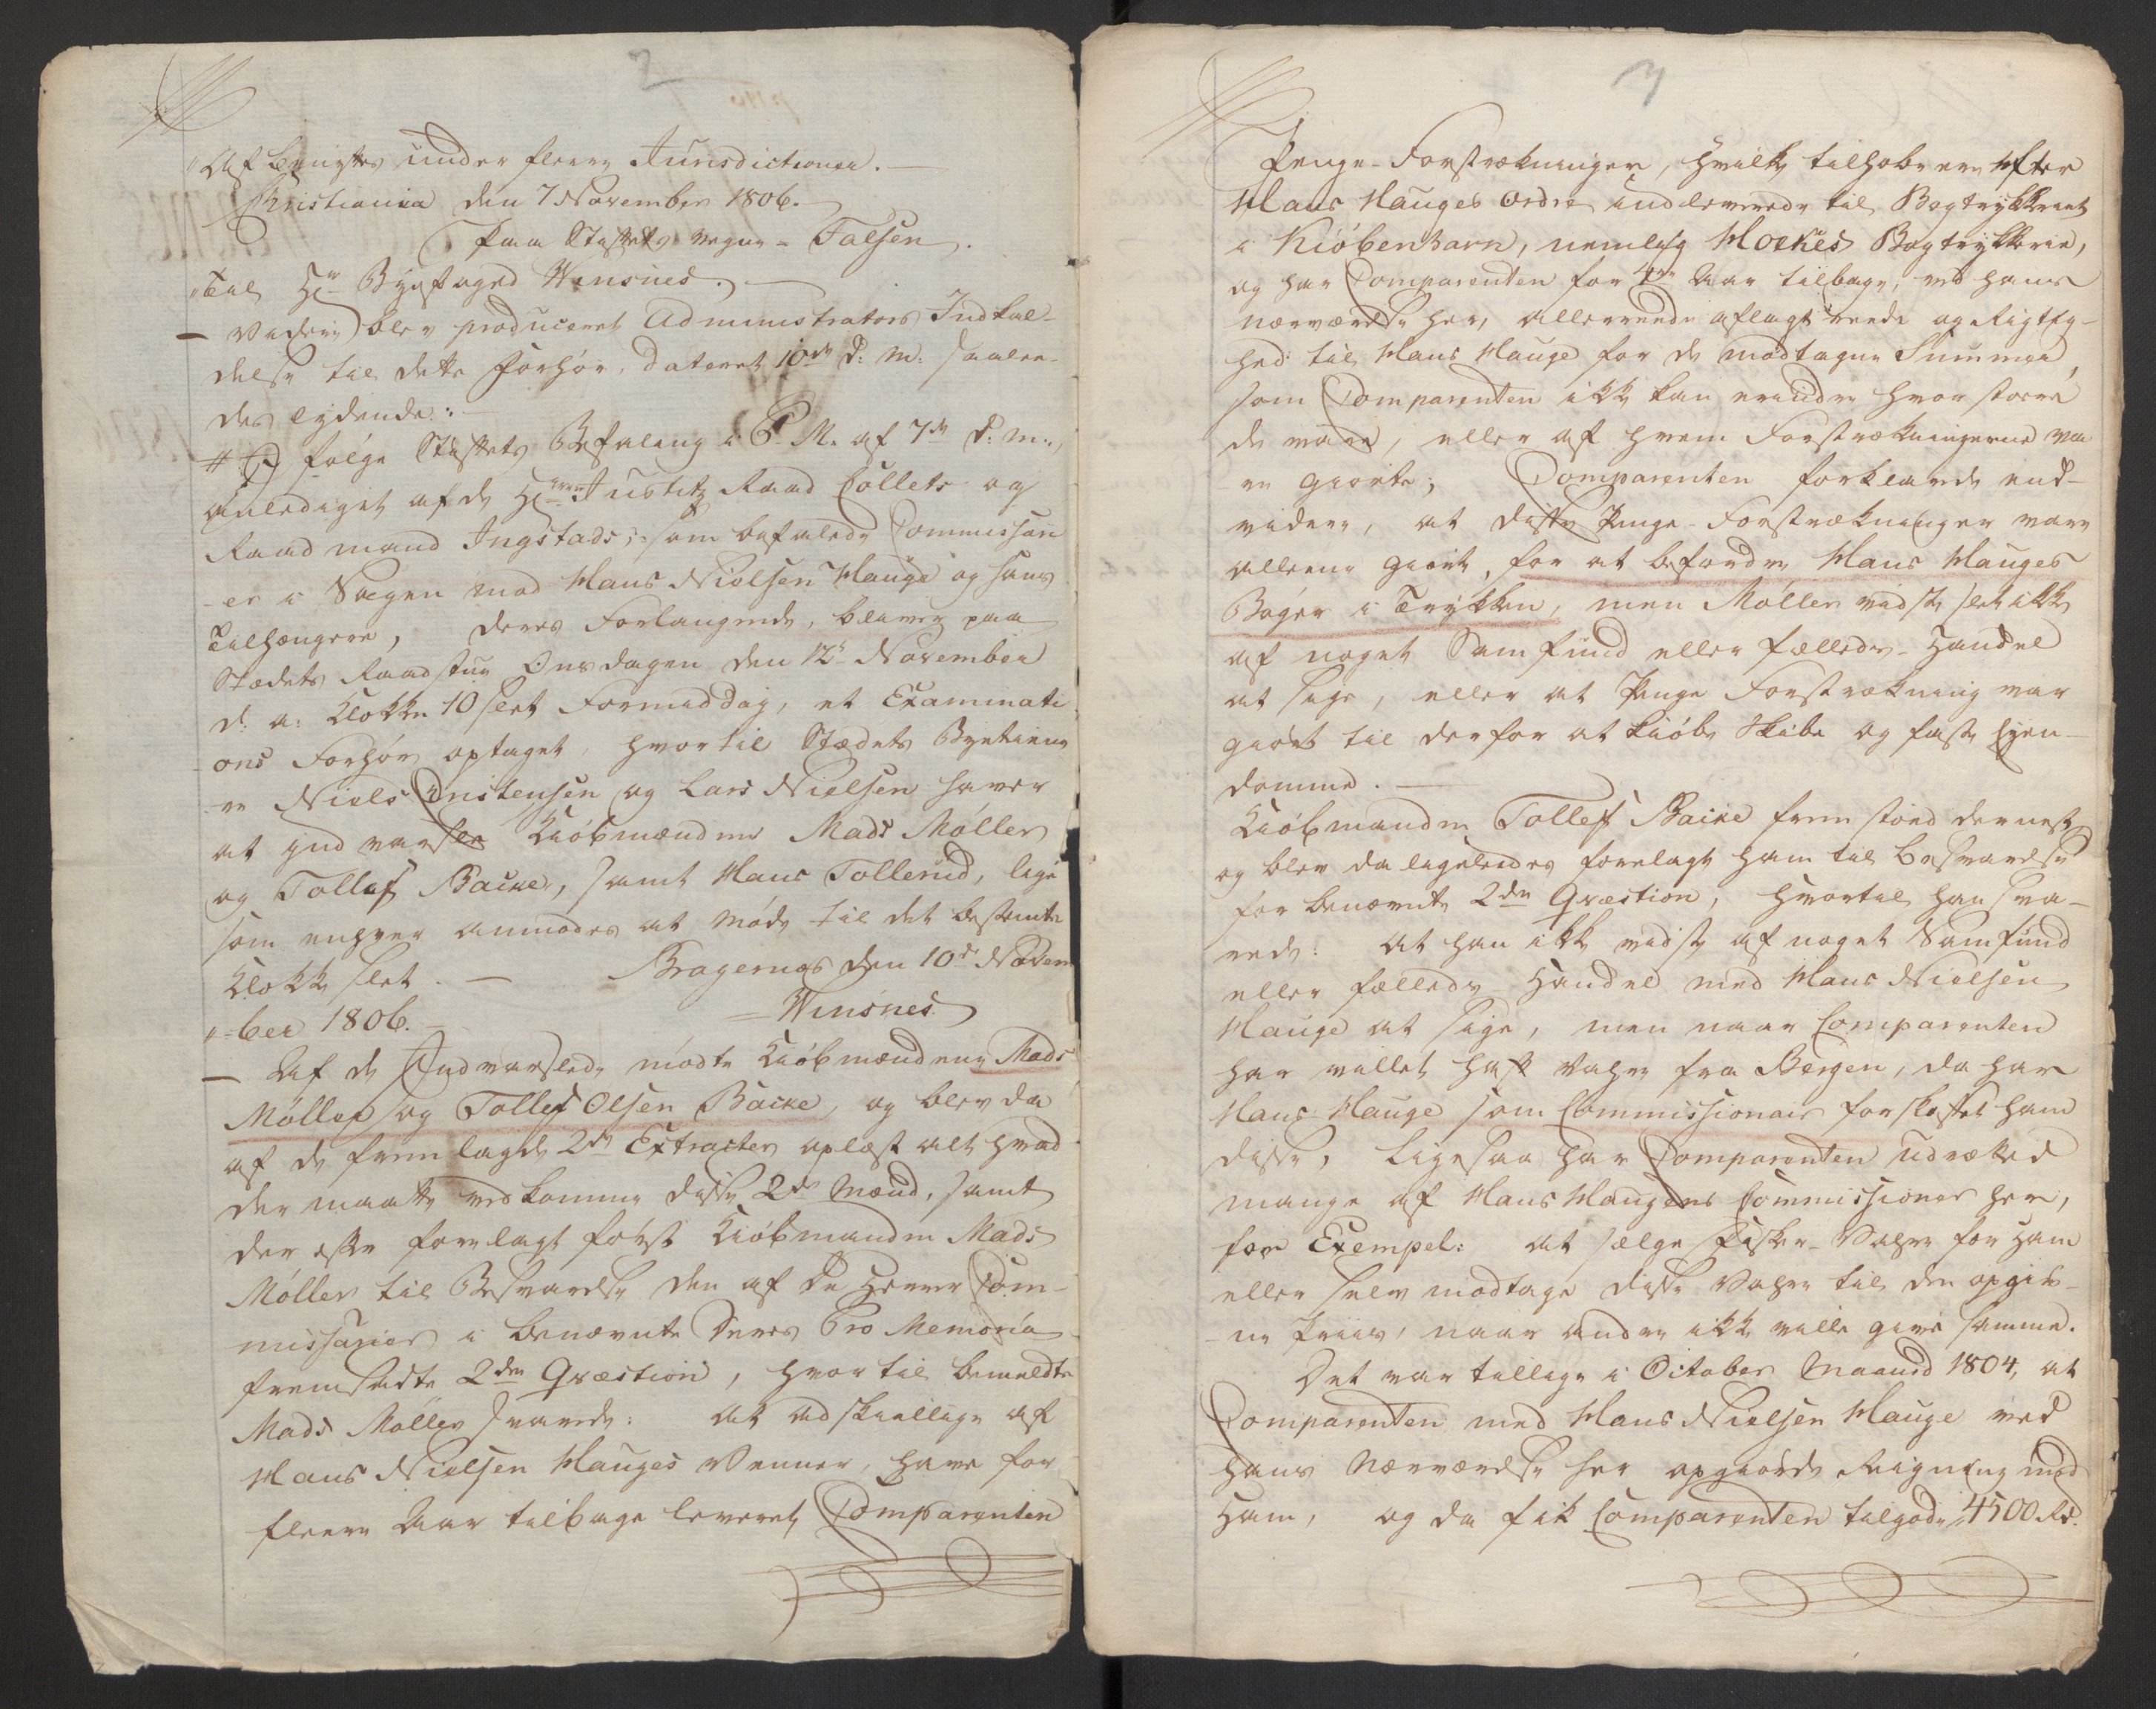 2
"Af benyttes under flere Jurisdictioner. —
Christiania den 7 November 1806.
Paa Stiftets vegne - Falsen.
"Til Hr Byefoged Wensnes. —
— Videre blev produceret Administrators Indkal-
delse til dette Forhør, dateret 10de d: M: saale-
des lydende: —
"I følge Stiftets Befaling i P. M. af 7de d: m:,
anlediget af de Hrrer Justitz Raad Collets og
Raadmand Ingstads, som befalede Commissari
er i Sagen mod Hans Nielsen Hauge og hans
Tilhængere, deres Forlangende, bliver paa
Stædets Raadstue Onsdagen den 12te November
d. a: Klokken 10 slet Formiddag, et Examinati
ons Forhør optaget, hvortil Stædets Byetiene
re Niels Christensen og Lars Nielsen haver
at indvarsle Kiøbmændene Mads Møller
og Tollef Backe, samt Hans Tollerud, lige
som enhver anmodes at møde til det bestemte
Klokke slet. — Bragernæs den 10de Novem
"=ber 1806. — Wensnes
— Af de Indvarslede mødte Kiøbmændene Mads
Møller og Tollef Olsen Backe, og blev da
af de fremlagde 2de Extracter oplæst alt hvad
der maatte vedkomme disse 2de Mænd, samt
der efter forelagt først Kiøbmanden Mads
Møller til Besvarelse den af de Herrer Com-
missarier i benævnte deres Pro Memoria
fremsadte 2den Qvæstion, hvortil bemeldte
Mads Møller svarede: At adskiellige af
Hans Nielsen Hauges Venner, have for
fleere Aar tilbage leveret Comparenten
3
Penge-Forstrækninger, hvilke tilhobe ere efter
Hans Hauges Ordre indleverede til Bogtrykkeriet
i Kiøbenhavn, nemlig Hoekes Bogtrykkerie,
og har Comparenten for Aar tilbage, ved hans
nærværelse her, allerreede aflagt reede og Rigtig-
hed til Hans Hauge for de modtagne Summer,
som Comparenten ikke kan erindre hvor store
de vare, eller af hvem Forstrækningerne va
re giorte; Comparenten forklarede end-
videre, at disse Penge-Forstrækninger vare
alleene giort, for at befordre Hans Hauges
Bøger i Trykken, men Møller vidste slet ikke
af noget Samfund eller fælleds-Handel
at sige, eller at Penge Forstrækning var
giort til derfor at kiøbe Skibe og faste Eyen-
domme. —
Kiøbmanden Tollef Backe fremstod dernest
og blev da ligeleedes forelagt ham til besvarelse
for benævnte 2den Qvæstion, hvortil han sva-
rede: At han ikke vidste af noget Samfund
eller fælleds Handel med Hans Nielsen
Hauge at sige, men naar Comparenten
har villet haft Vahre fra Bergen, da har
Hans Hauge som Commissionair forskaffet ham
disse, Ligesaa har Comparenten udrættet
mange af Hans Haugens Commissioner her,
for Exempel: at sælge Fiske-Vahre for Ham
eller selv modtage disse Vahre til den opgiv-
ne Priis, naar andre ikke ville give samme.
Det var tillige i October Maaned 1804, at
Comparenten med Hans Nielsen Hauge ved
hans Nærværelse her opgiorde Reigning med
Ham, og da fik Comparenten tilgode 4500 Rd.